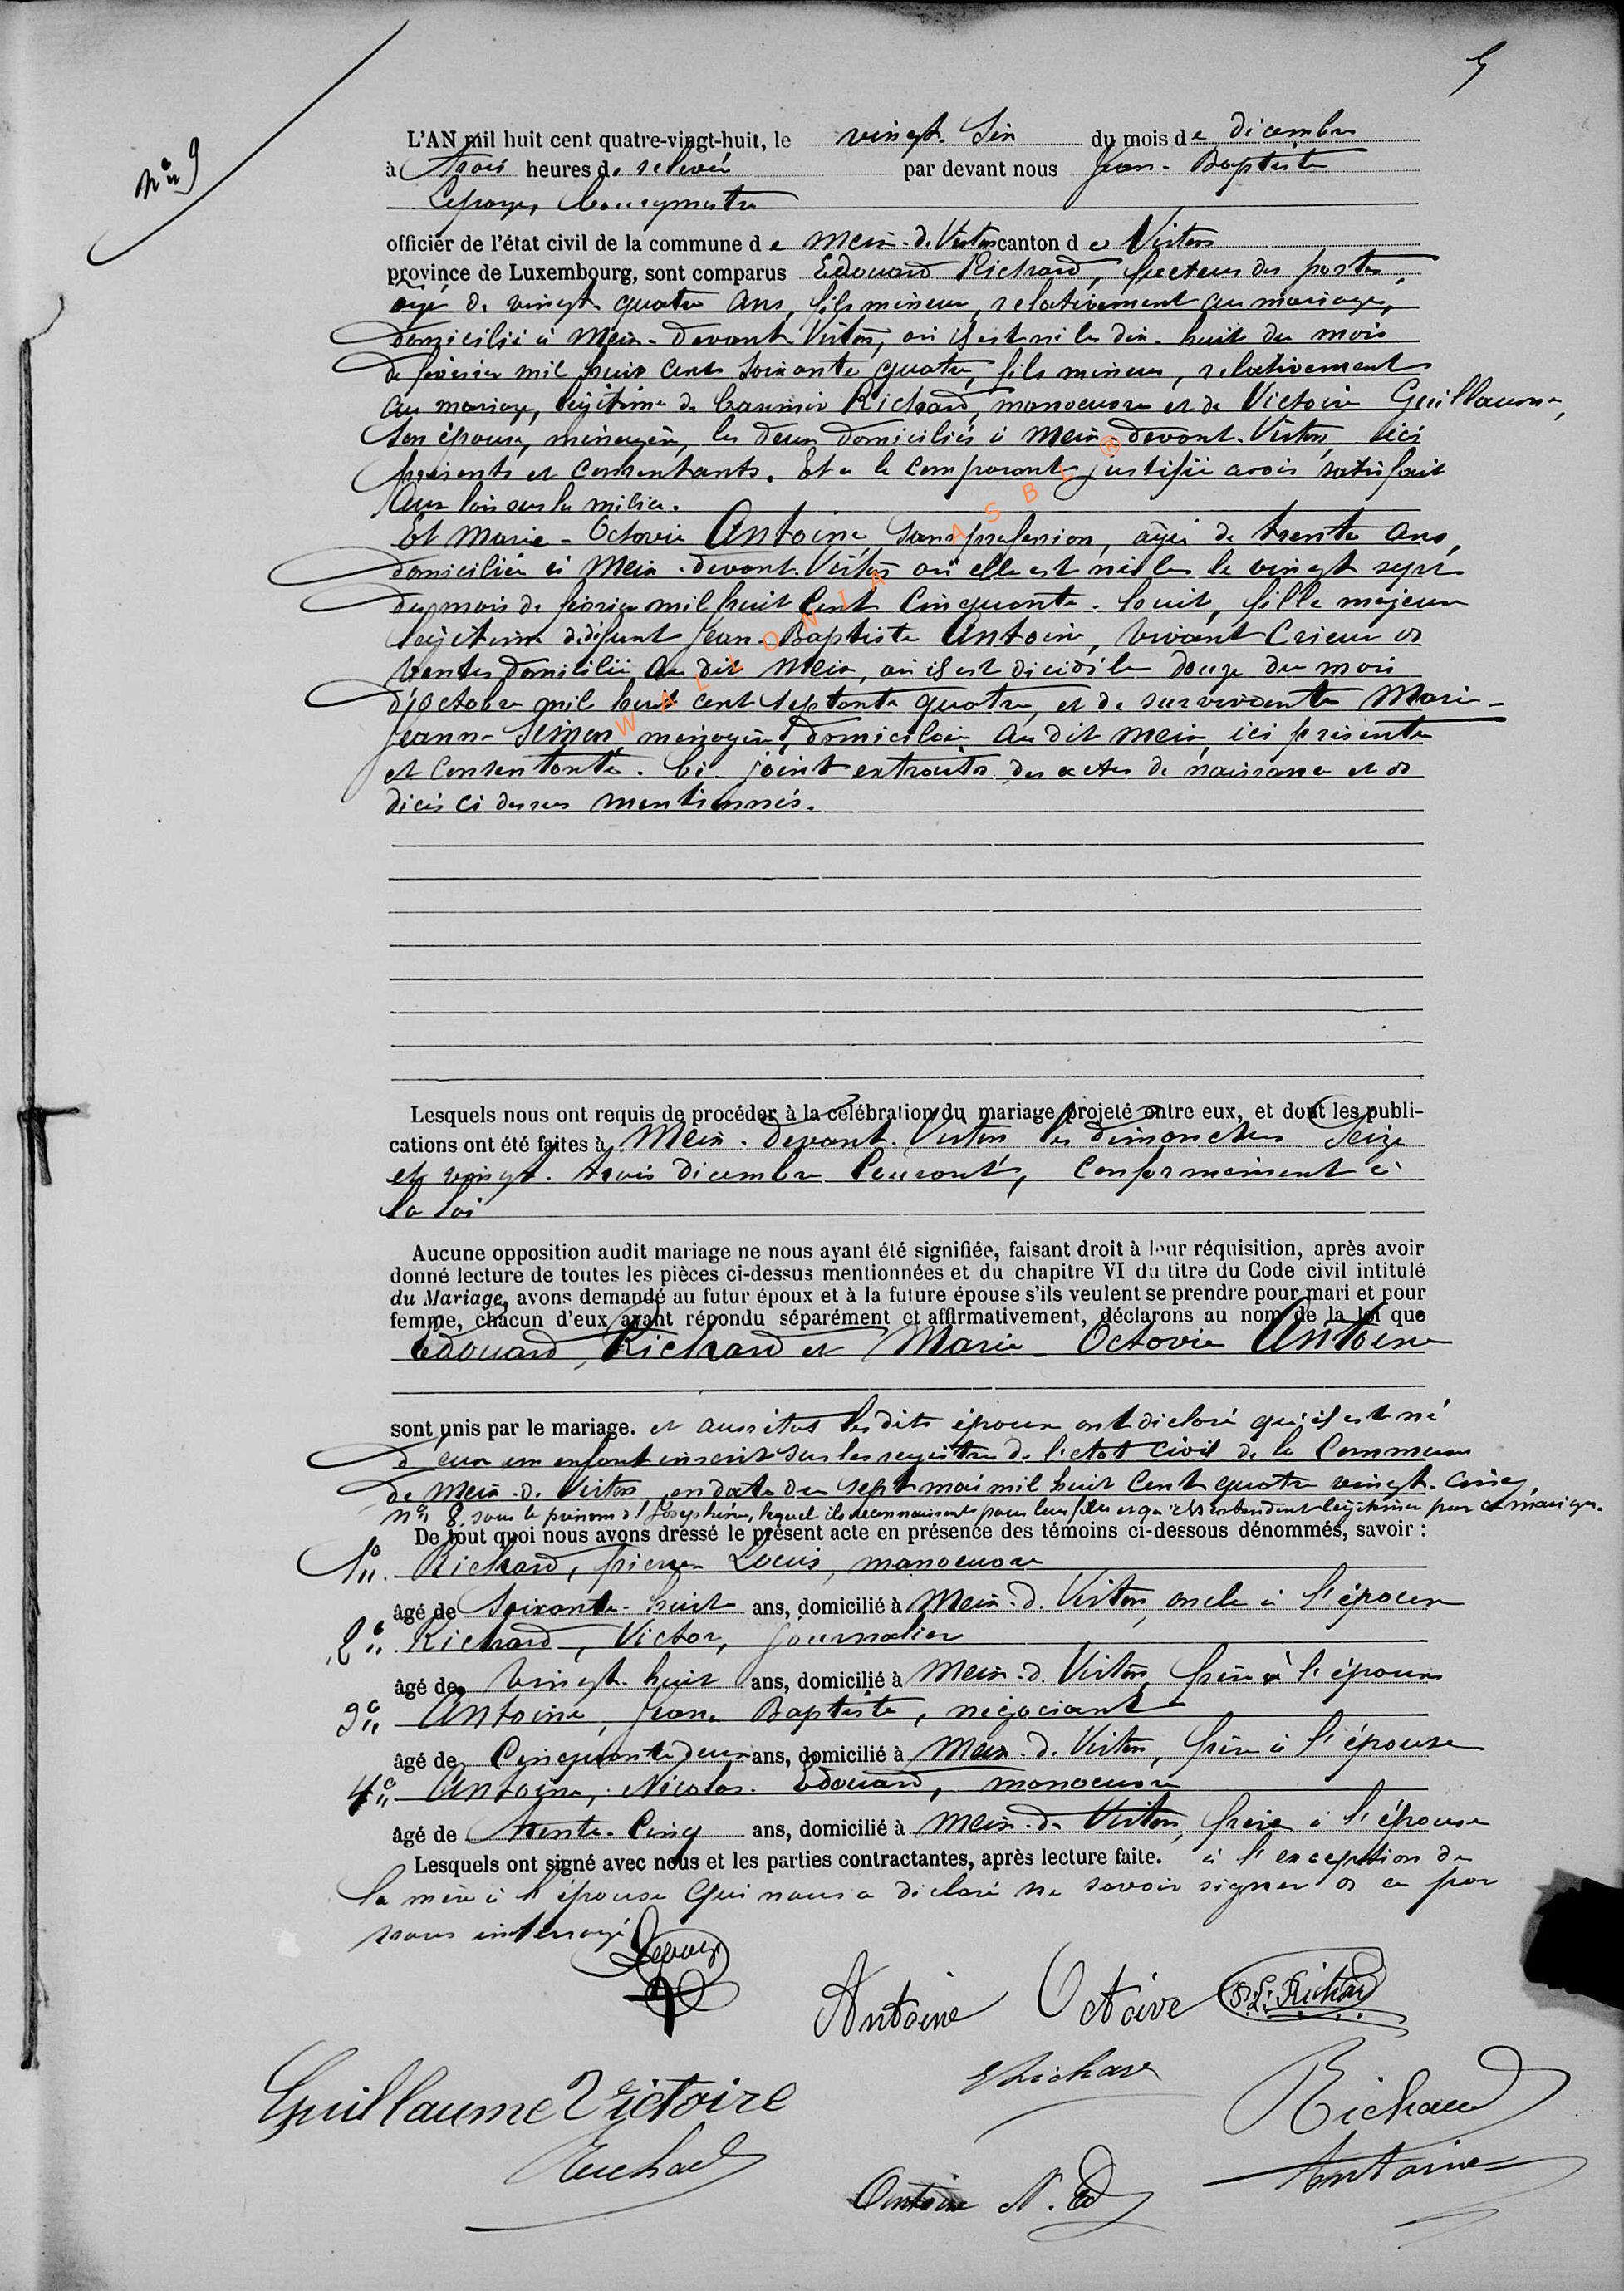 5
N° 9
L'AN mil huit cent quatre-vingt-huit, le vingt-six du mois de décembre
à trois heures de relevée par devant nous Jean-Baptiste
Lepage, bourgmestre
officier de l'état civil de la commune de Meix-d.Virton canton de Virton
province de Luxembourg, sont comparus Edouard Richard, facteur des postes,
âgé de vingt quatre ans, fils mineur, relativement au mariage,
domicilié à Meix-devant-Virton, où il est né le dix-huit du mois
de février mil huit cent soixante quatre, fils mineur, relativement
au mariage, légitime de Casimir Richard, manoeuvre et de Victoire Guillaume,
son épouse, ménagère, les deux domiciliés à Meix-devant-Virton, ici
présents et consentants. Et a le comparant justifié avoir satisfait
aux lois sur la milice.
Et Marie-Octavie Antoine, sans profession, âgée de trente ans,
domiciliée à Meix-devant-Virton où elle est née le le vingt sept
du mois de février mil huit cent cinquante-huit, fille majeure
légitime de défunt Jean-Baptiste Antoine, vivant crieur de
ventes domicilié au dit Meix, où il est décédé le douze du mois
d'octobre mil huit cent septante quatre, et de survivante Marie-
Jeanne Simon, ménagère, domiciliée au dit Meix, ici présente
et consentante. Ci-joint extraits des actes de naissance et de
décès ci dessus mentionnés.
WALLONIA ASBL ®
Lesquels nous ont requis de procéder à la célébration du mariage projeté entre eux, et dont les publi-
cations ont été faites à Meix-devant-Virton les dimanches seize
et vingt-trois décembre courant, conformément à
la loi
Aucune opposition audit mariage ne nous ayant été signifiée, faisant droit à leur réquisition, après avoir
donné lecture de toutes les pièces ci-dessus mentionnées et du chapitre VI du titre du Code civil intitulé
du Mariage, avons demandé au futur époux et à la future épouse s'ils veulent se prendre pour mari et pour
femme, chacun d'eux ayant répondu séparément et affirmativement, déclarons au nom de la loi que
Edouard Richard et Marie-Octavie Antoine
sont unis par le mariage. et aussitôt les dits époux ont déclaré qu'il est né
d'eux un enfant inscrit sur les registres de l'état civil de la commune
de Meix-d.Virton en date du sept mai mil huit cent quatre vingt-cinq,
n° 8, sous le prénom de Joséphine, lequel ils reconnaissent pour leur fille et qu'ils entendent légitimer par ce mariage.
De tout quoi nous avons dressé le présent acte en présence des témoins ci-dessous dénommés, savoir :
1° Richard, Pierre Louis, manoeuvre
âgé de soixante-huit ans, domicilié à Meix-d.Virton, oncle à l'époux
2° Richard, Victor, journalier
âgé de vingt-huit ans, domicilié à Meix-d.Virton, frère à l'époux
3° Antoine, Jean-Baptiste, négociant
âgé de cinquante deux ans, domicilié à Meix-d.Virton, frère à l'épouse
4° Antoine, Nicolas-Edouard, manoeuvre
âgé de trente-cinq ans, domicilié à Meix-d.Virton, frère à l'épouse
Lesquels ont signé avec nous et les parties contractantes, après lecture faite. à l'exception de
la mère à l'épouse qui nous a déclaré ne savoir signer de ce par
nous interrogé
Lepage
Antoine Octavie P.L. Richard
ERichard
Guillaume Victoire Richard
Richard
Antoine
Antoine N. Ed